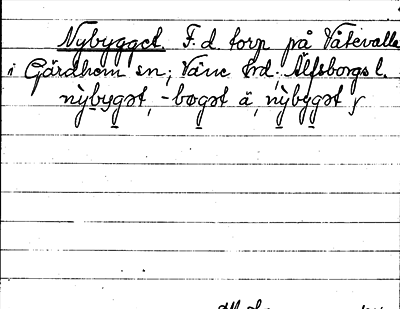 Nybygget. F.d. torp på Våtevalla
i Gärdhem sn; Väne hd; Älfsborgs l.
nỳbygət, -bøgət ä, nỳbygət y